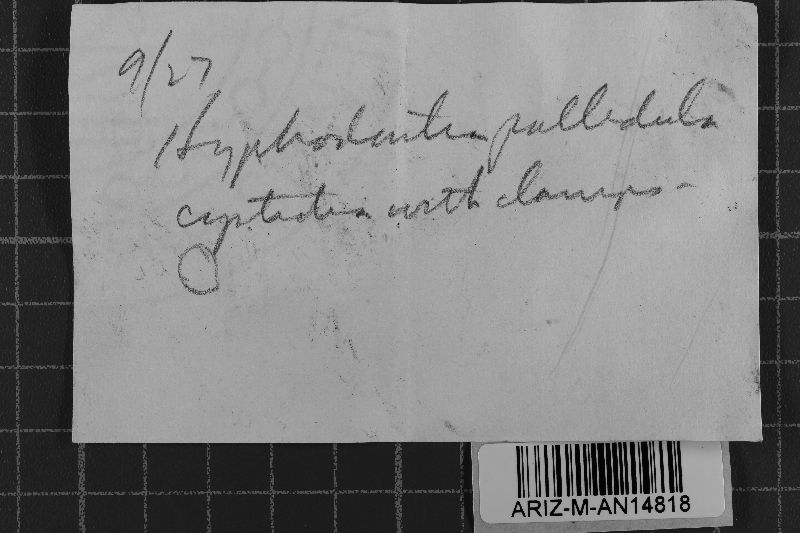 9/27
Hyphodontia pallidula
cystidia with clamps -
ARIZ-M-AN14818